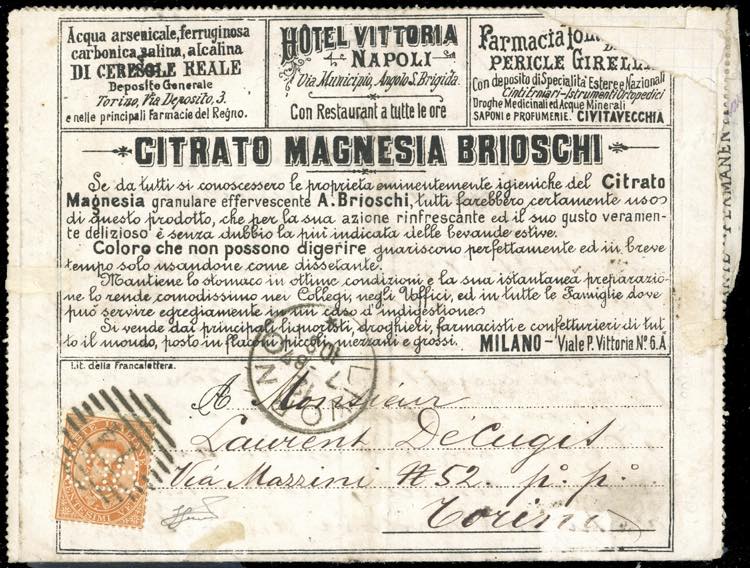 Acqua arsenicale, ferruginosa
carbonica, salina, alcalina
DI CERESOLE REALE
Deposito Generale
Torino, Via Deposito, 3.
e nelle principali Farmacie del Regno.
HÔTEL VITTORIA
NAPOLI
Via Municipio, Angolo S. Brigida.
Con Restaurant a tutte le ore
Farmacia
DI
PERICLE GIRELLI
Con deposito di Specialità Estere e Nazionali
Cinti Erniari-Istrumenti Ortopedici
Droghe Medicinali ed Acque Minerali
SAPONI e PROFUMERIE. CIVITAVECCHIA
CITRATO MAGNESIA BRIOSCHI
Se da tutti si conoscessero le proprietà eminentemente igieniche del Citrato
Magnesia granulare effervescente A. Brioschi, tutti farebbero certamente uso
di questo prodotto, che per la sua azione rinfrescante ed il suo gusto veramen-
te delizioso è senza dubbio la più indicata delle bevande estive.
Coloro che non possono digerire guariscono perfettamente ed in breve
tempo solo usandone come dissetante.
Mantiene lo stomaco in ottime condizioni e la sua istantanea preparazio-
ne lo rende comodissimo nei Collegi, negli Uffici, ed in tutte le Famiglie dove
può servire egregiamente in un caso d'indigestione
Si vende dai principali liquoristi, droghieri, farmacisti e confetturieri di tut-
to il mondo, posto in flaconi piccoli, mezzani e grossi. MILANO - Viale P. Vittoria Nº 6. A
Lit. della Francalettera.
A Monsieur
Laurent DéCugis
Via Mazzini # 52. pº. pº.
Torino